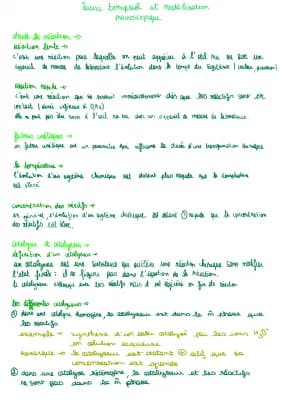 Suivi temporel et modélisation
macroscopique
durée de réaction →
réaction lente →
c'est une réaction pour laquelle on peut apprécier à l'œil nu ou avec un
appareil de mesure de laboratoire l'évolution dans le temps du système (couleur, pression)
réaction rapide →
c'est une réaction qui se produit instantanément dès que les réactifs sont en
contact (durée inférieure à 0,1s)
elle n'est pas à l'œil nu ou avec un appareil de mesure de laboratoire.
facteurs cinétiques →
un facteur cinétique est un paramètre qui influence la durée d'une transformation chimique
la température →
l'évolution d'un système chimique est d'autant plus rapide que la température
est élevée
concentration des réactifs →
en général, l'évolution d'un système chimique est d'autant ⊕ rapide que la concentration
des réactifs est élevée.
catalyse et catalyseur →
définition d'un catalyseur →
un catalyseur est une substance qui accélère une réaction chimique sans modifier
l'état final : il ne figure pas dans l'équation de la réaction.
le catalyseur réagit avec les réactifs mais il est régénéré en fin de réaction
les différentes catalyses →
① dans une catalyse homogène, le catalyseur est dans la m̂ phase que
les réactifs
exemple → synthèse d'un ester catalysé par les ions H₃O⁺
en solution aqueuse
remarque → le catalyseur est d'autant ⊕ actif que sa
concentration est grande
② dans une catalyse hétérogène, le catalyseur et les réactifs
ne sont pas dans la m̂ phase